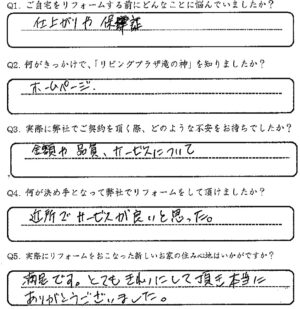 Q1. ご自宅をリフォームする前にどんなことに悩んでいましたか？
仕上がりや保障証
Q2. 何がきっかけで、「リビングプラザ滝の神」を知りましたか？
ホームページ.
Q3. 実際に弊社でご契約を頂く際、どのような不安をお持ちでしたか？
金額や品質、サービスについて
Q4. 何が決め手となって弊社でリフォームをして頂けましたか？
近所でサービスが良いと思った。
Q5. 実際にリフォームをおこなった新しいお家の住み心地はいかがですか？
満足です。とてもきれいにして頂き本当に
ありがとうございました。